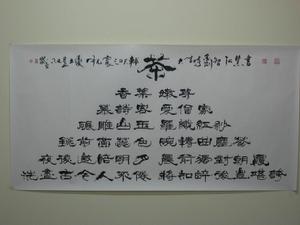 茶
香葉 嫩芽
慕詩客 愛僧家
碾雕白玉 羅織紅紗
銚煎黃蕊色 碗轉曲塵花
夜後邀陪明月 晨前獨對朝霞
洗盡古今人不倦 將知醉後豈堪誇